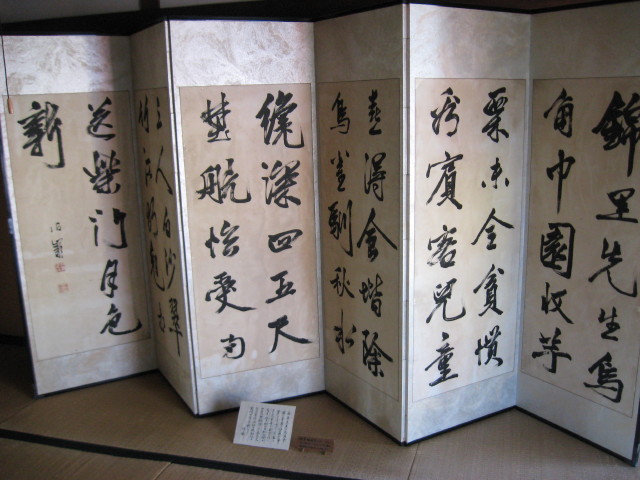 錦里先生烏
角巾園收芋
栗未全貧慣
看賓客兒童
喜得食堦除
鳥雀馴秋水
纔深四五尺
埜航恰受両
三人白沙翠
竹江村暮相
送柴門月色
新